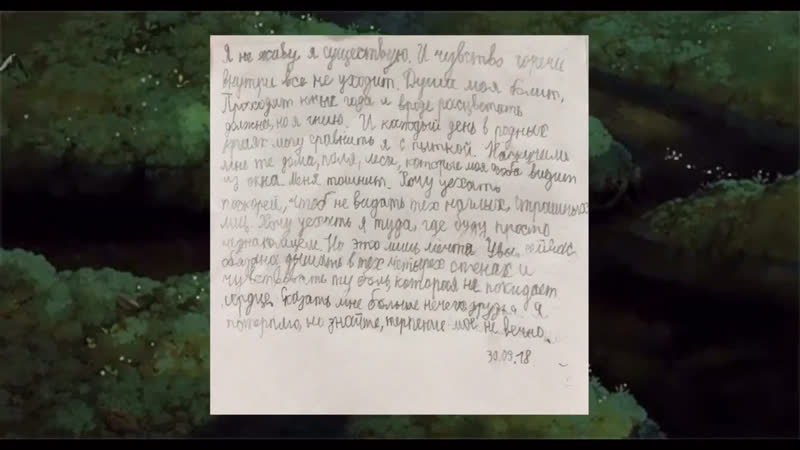 Я не живу, я существую. И чувство горечи
внутри все не уходит. Душа моя болит,
Проходят юные года и вроде расцветать
должна, но я гнию. И каждый день в родных
краях могу сравнить я с пыткой. Наскучили
мне те дома, поля, леса, которые моя особа видит
из окна. Меня тошнит. Хочу уехать
поскорей, чтоб не видать тех наглых, страшных
лиц. Хочу уехать я туда, где буду просто
незнакомцем. Но это лишь мечта. Увы, сейчас
обязана дышать в тех четырех стенах и
чувствовать ту боль, которая не покидает
сердце. Сказать мне больше нечего, друзья. Я
потерплю, но знайте, терпение мое не вечно.
30.09.18